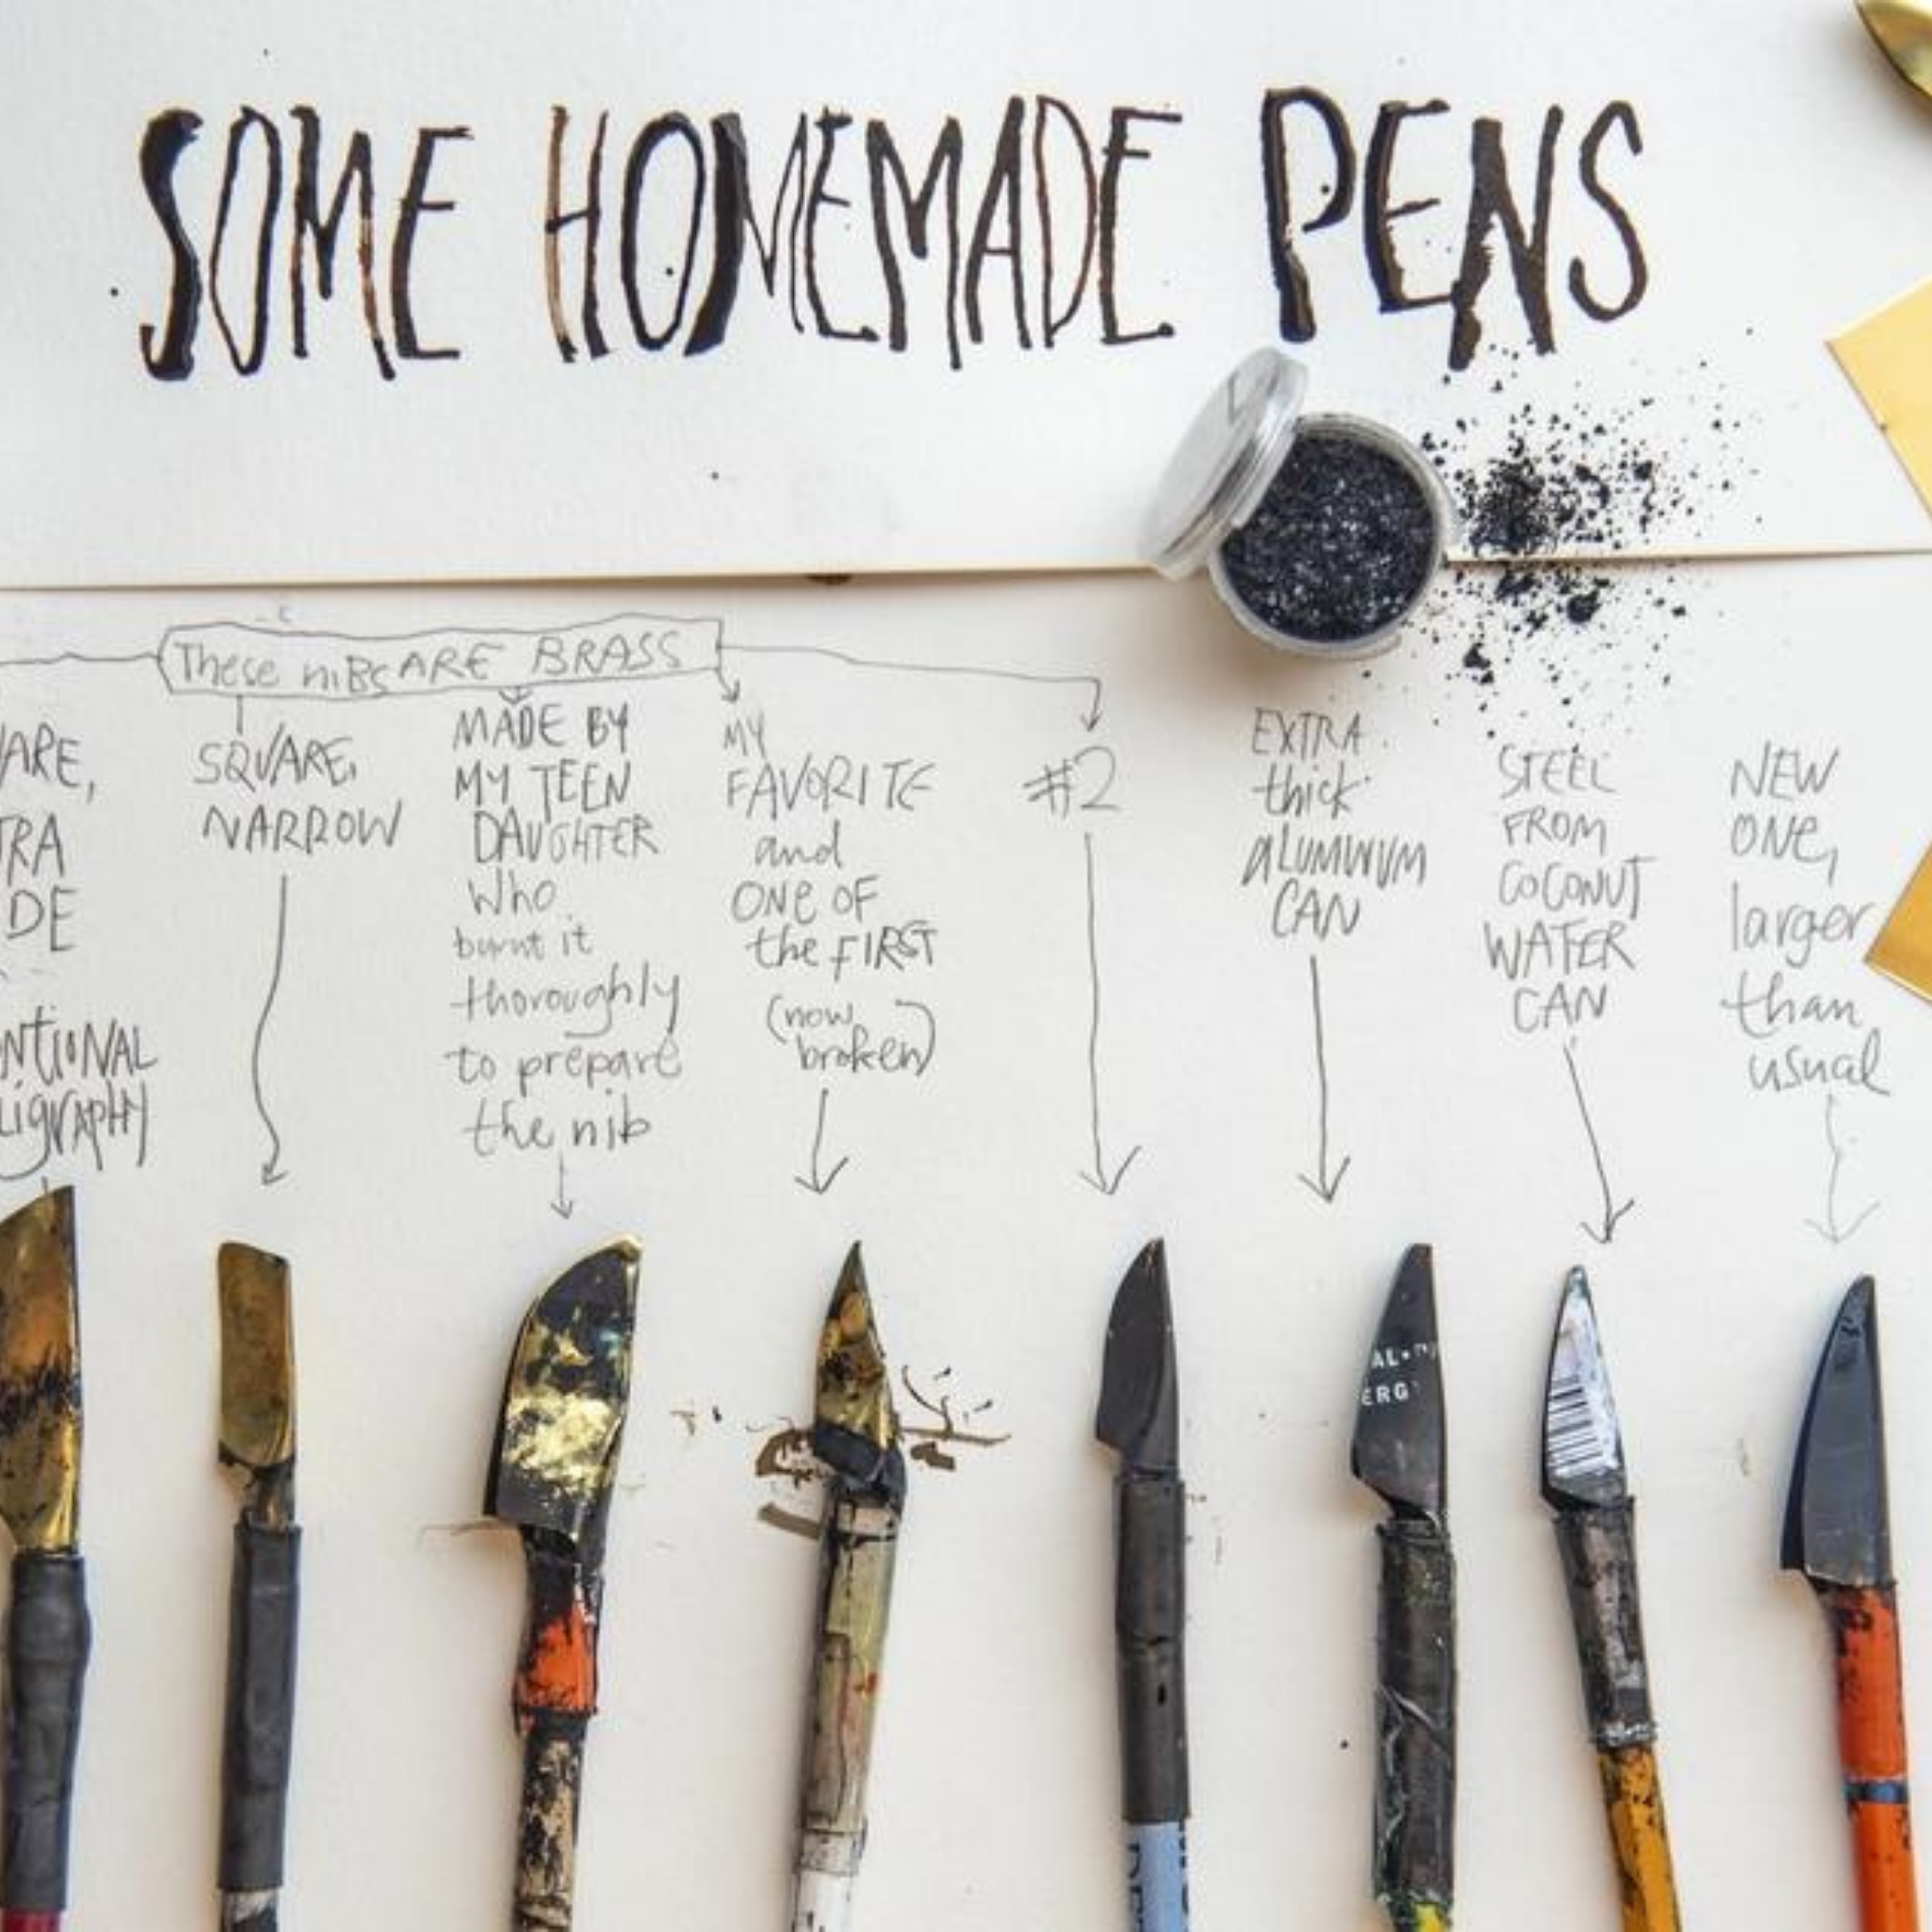 SOME HOMEMADE PENS
These niBs ARE BRASS
SQUARE,
NARROW
MADE BY
MY TEEN
DAUGHTER
Who
burnt it
thoroughly
to prepare
the nib
MY
FAVORITE
and
ONE OF
the FIRST
(now
broken)
#2
EXTRA
thick
ALUMINUM
CAN
STEEL
FROM
COCONUT
WATER
CAN
NEW
ONE,
larger
than
usual